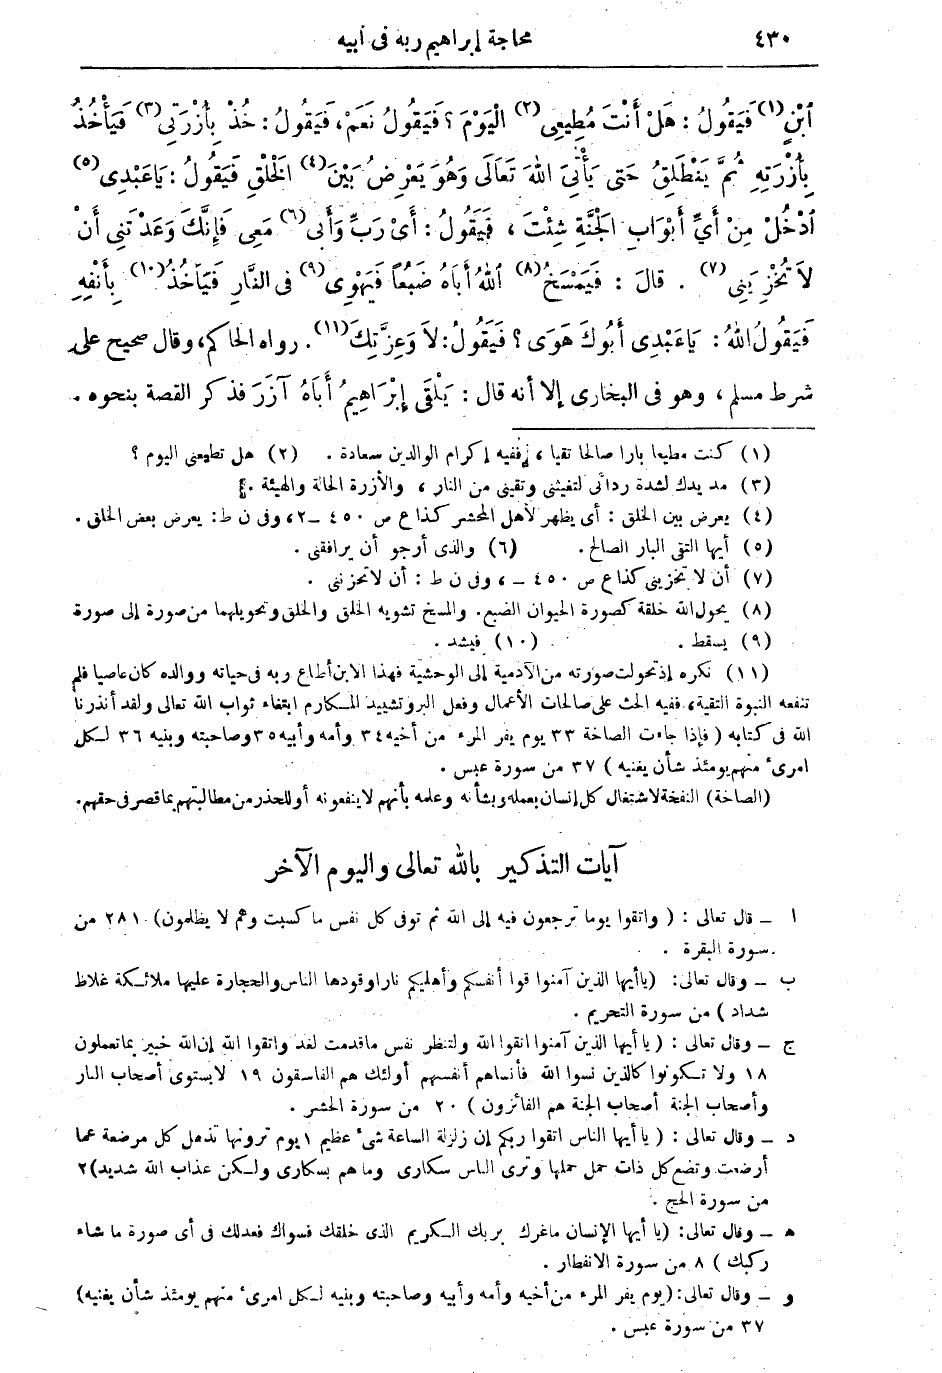 ٤٣٠
محاجة إبراهيم ربه فى أبيه
ٱبْنٍ (١) فَيَقُولُ : هَلْ أَنْتَ مُطِيعِى (٢) الْيَوْمَ ؟ فَيَقُولُ نَعَمْ ، فَيَقُولُ : خُذْ بِأُزْرَتِى (٣) فَيَأْخُذُ
بِأُزْرَتِهِ ثُمَّ يَنْطَلِقُ حَتى يَأْتِىَ اللهَ تَعَالَى وَهُوَ يَعْرِضُ بَيْنَ (٤) الْخَلْقِ فَيَقُولُ : يَاعَبْدِى (٥)
اُدْخُلْ مِنْ أَىِّ أَبْوَابِ الْجَنَّةِ شِئْتَ ، فَيَقُولُ : أَىْ رَبِّ وَأَبى (٦) مَعِى فَإِنَّكَ وَعَدْتَنِى أَنْ
لاَ تُخْزِيَنِى (٧) . قالَ : فَيَمْسَخُ (٨) اُللهُ أَبَاهُ ضَبُعاً فَيَهْوِى (٩) فى النَّارِ فَيَأْخُذُ (١٠) بِأَنْفِهِ
فَيَقُولُ اللهُ : يَاعَبْدِى أَبُوكَ هَوَى ؟ فَيَقُولُ : لاَ وَعِزَّتِكَ (١١) . رواه الحاكم ، وقال صحيح على
شرط مسلم ، وهو فى البخارى إلا أنه قال : يَلْقَى إِبْرَاهِيمُ أَبَاهُ آزَرَ فذكر القصة بنحوه .
(١) كنت مطيعا بارا صالحا تقيا ، ففيه إكرام الوالدين سعادة . (٢) هل تطيعنى اليوم ؟
(٣) مد يدك لشدة ردائى لتغيثنى وتقينى من النار ، والأزرة الحالة والهيئة .
(٤) يعرض بين الخلق : أى يظهر لأهل المحشر كذا ع ص ٤٥٠ ــ ٢ ، وفى ن ط : يعرض بعض الخلق .
(٥) أيها التقى البار الصالح . (٦) والذى أرجو أن يرافقنى .
(٧) أن لا تخزينى كذا ع ص ٤٥٠ ــ ، وفى ن ط : أن لا تحزننى .
(٨) يحول الله خلقة كصورة الحيوان الضبع . والمسخ تشويه الخلق والخلق وتحويلهما من صورة إلى صورة
(٩) يسقط . (١٠) فيشد .
(١١) نكره إذ تحولت صورته من الآدمية إلى الوحشية فهذا الابن أطاع ربه فى حياته ووالده كان عاصيا فلم
تنفعه النبوة التقية ، ففيه الحث على صالحات الأعمال وفعل البر وتشييد المكارم ابتغاء ثواب الله تعالى ولقد أنذرنا
الله فى كتابه ( فإذا جاءت الصاخة ٣٣ يوم يفر المرء من أخيه ٣٤ وأمه وأبيه ٣٥ وصاحبته وبنيه ٣٦ لكل
امرىء منهم يومئذ شأن يغنيه ) ٣٧ من سورة عبس .
(الصاخة) النفخة لاشتغال كل إنسان بعمله وبشأنه وعلمه بأنهم لاينفعونه أو للحذر من مطالبتهم بما قصر فى حقهم .
آيات التذكير بالله تعالى واليوم الآخر
ا ــ قال تعالى : ( واتقوا يوما ترجعون فيه إلى الله ثم توفى كل نفس ما كسبت وهم لا يظلمون ) ٢٨١ من
سورة البقرة .
ب ــ وقال تعالى : (ياأيها الذين آمنوا قوا أنفسكم وأهليكم نارا وقودها الناس والحجارة عليها ملائكة غلاظ
شداد ) من سورة التحريم .
ج ــ وقال تعالى : ( يا أيها الذين آمنوا اتقوا الله ولتنظر نفس ماقدمت لغد واتقوا الله إن الله خبير بما تعملون
١٨ ولا تكونوا كالذين نسوا الله فأنساهم أنفسهم أولئك هم الفاسقون ١٩ لايستوى أصحاب النار
وأصحاب الجنة أصحاب الجنة هم الفائزون ) ٢٠ من سورة الحشر .
د ــ وقال تعالى : ( يا أيها الناس اتقوا ربكم إن زلزلة الساعة شىء عظيم ١ يوم ترونها تذهل كل مرضعة عما
أرضعت وتضع كل ذات حمل حملها وترى الناس سكارى وما هم بسكارى ولكن عذاب الله شديد) ٢
من سورة الحج .
ه ــ وقال تعالى : (يا أيها الإنسان ماغرك بربك الكريم الذى خلقك فسواك فعدلك فى أى صورة ما شاء
ركبك ) ٨ من سورة الانفطار .
و ــ وقال تعالى : (يوم يفر المرء من أخيه وأمه وأبيه وصاحبته وبنيه لكل امرىء منهم يومئذ شأن يغنيه)
٣٧ من سورة عبس .